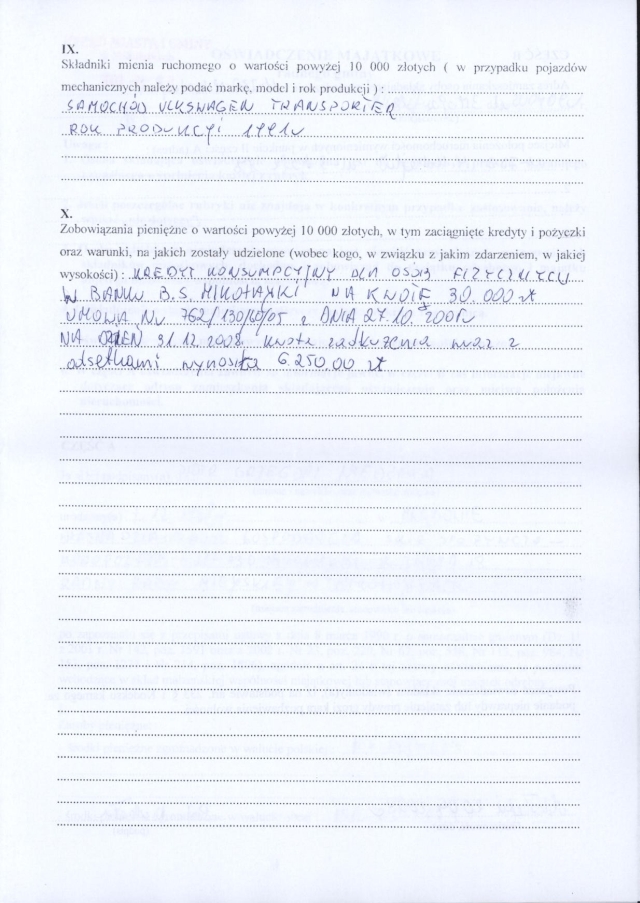 IX.
Składniki mienia ruchomego o wartości powyżej 10 000 złotych ( w przypadku pojazdów
mechanicznych należy podać markę, model i rok produkcji ) :
SAMOCHÓD VLKSWAGEN TRANSPORTER
ROK PRODUKCJI 1991r
X.
Zobowiązania pieniężne o wartości powyżej 10 000 złotych, w tym zaciągnięte kredyty i pożyczki
oraz warunki, na jakich zostały udzielone (wobec kogo, w związku z jakim zdarzeniem, w jakiej
wysokości) : KREDYT KONSUMPCYJNY DLA OSÓB FIZYCZNYCH
W BANKU B.S. MIKOŁAJKI NA KWOTĘ 30.000 zł
UMOWA Nr 762/130/60/05 z DNIA 27.10.2005r
NA DZIEŃ 31.12.2008. kwota zadłużenia wraz z
odsetkami wynosiła 6.250.00 zł